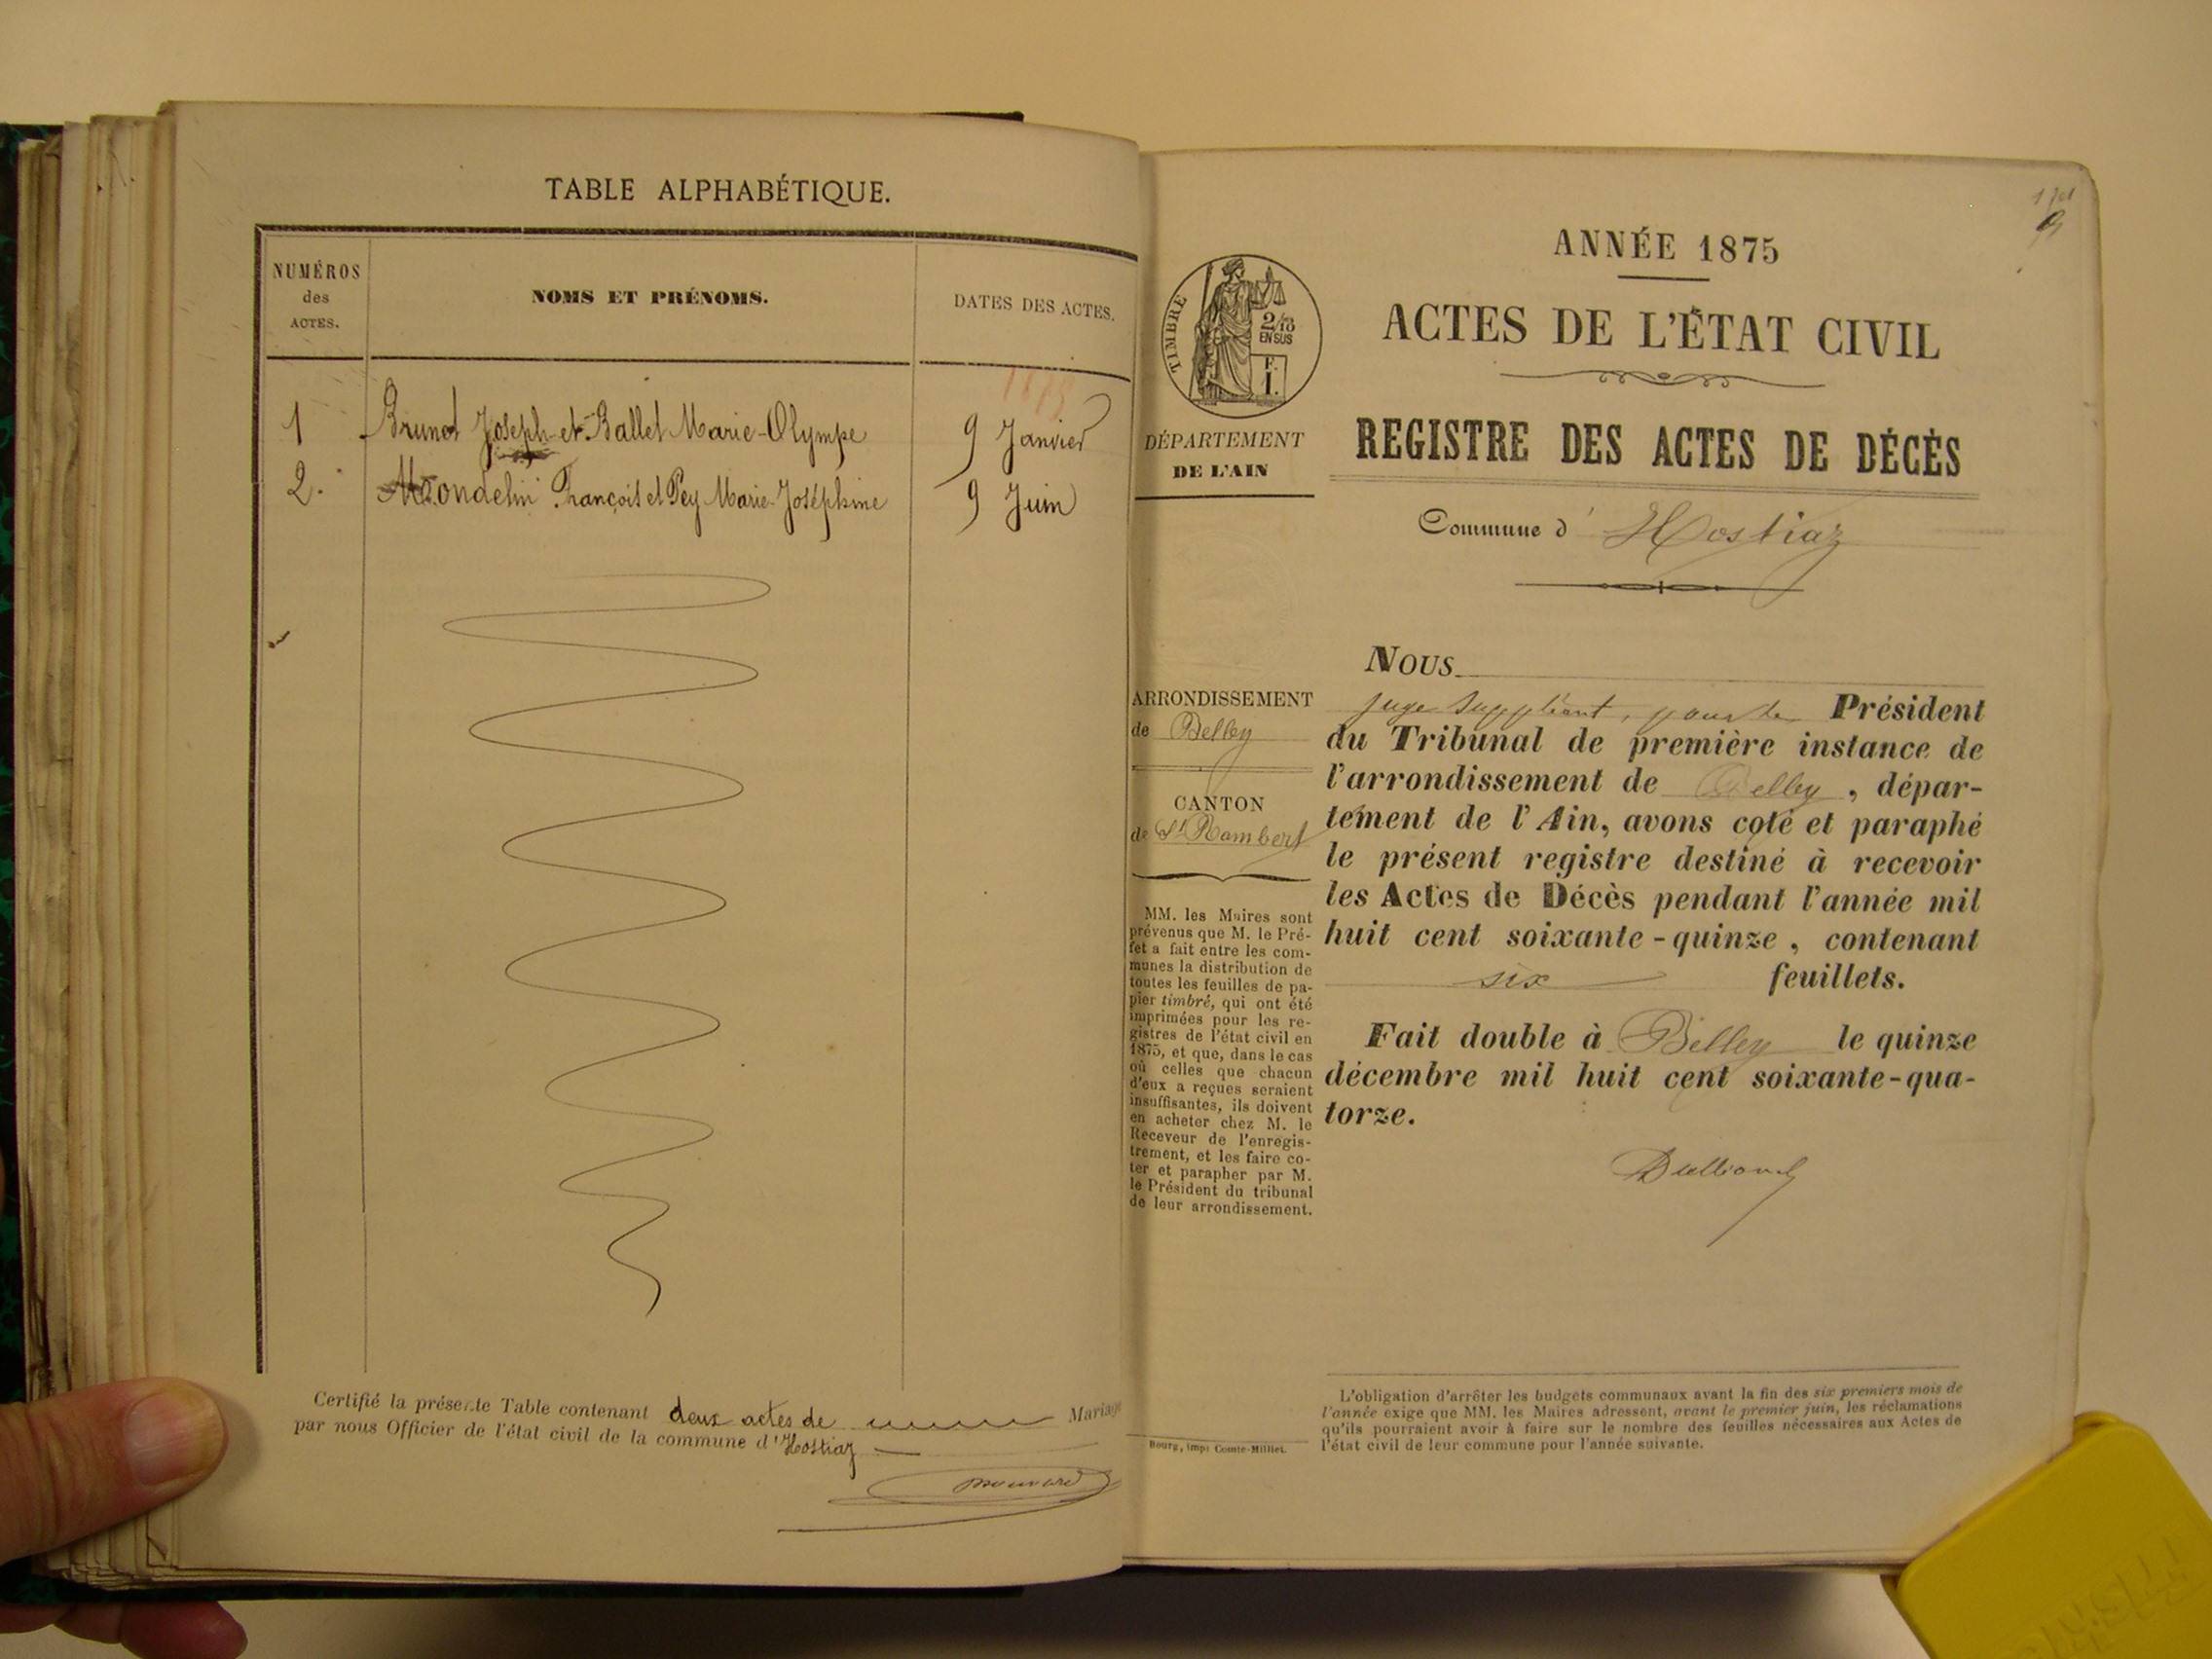 TABLE ALPHABÉTIQUE.
NUMÉROS
des
ACTES.
NOMS ET PRÉNOMS.
DATES DES ACTES.
1875
1 Brunet Joseph et Ballet Marie-Olympe 9 Janvier
2. François et Pey Marie-Joséphine 9 Juin
Certifié la présente Table contenant deux actes de Mariage
par nous Officier de l'état civil de la commune d'Hostiaz
ANNÉE 1875
ACTES DE L'ÉTAT CIVIL
REGISTRE DES ACTES DE DÉCÈS
Commune d' Hostiaz
TIMBRE
2/10
EN SUS
F.
1.
DÉPARTEMENT
DE L'AIN
ARRONDISSEMENT
de Belley
CANTON
de St Rambert
MM. les Maires sont
prévenus que M. le Pré-
fet a fait entre les com-
munes la distribution de
toutes les feuilles de pa-
pier timbré, qui ont été
imprimées pour les re-
gistres de l'état civil en
1875, et que, dans le cas
où celles que chacun
d'eux a reçues seraient
insuffisantes, ils doivent
en acheter chez M. le
Receveur de l'enregis-
trement, et les faire co-
ter et parapher par M.
le Président du tribunal
de leur arrondissement.
Bourg, imp. Comte-Milliet.
Nous
juge suppléant, pour le Président
du Tribunal de première instance de
l'arrondissement de Belley, dépar-
tement de l'Ain, avons coté et paraphé
le présent registre destiné à recevoir
les Actes de Décès pendant l'année mil
huit cent soixante-quinze, contenant
six feuillets.
Fait double à Belley le quinze
décembre mil huit cent soixante-qua-
torze.
L'obligation d'arrêter les budgets communaux avant la fin des six premiers mois de
l'année exige que MM. les Maires adressent, avant le premier juin, les réclamations
qu'ils pourraient avoir à faire sur le nombre des feuilles nécessaires aux Actes de
l'état civil de leur commune pour l'année suivante.